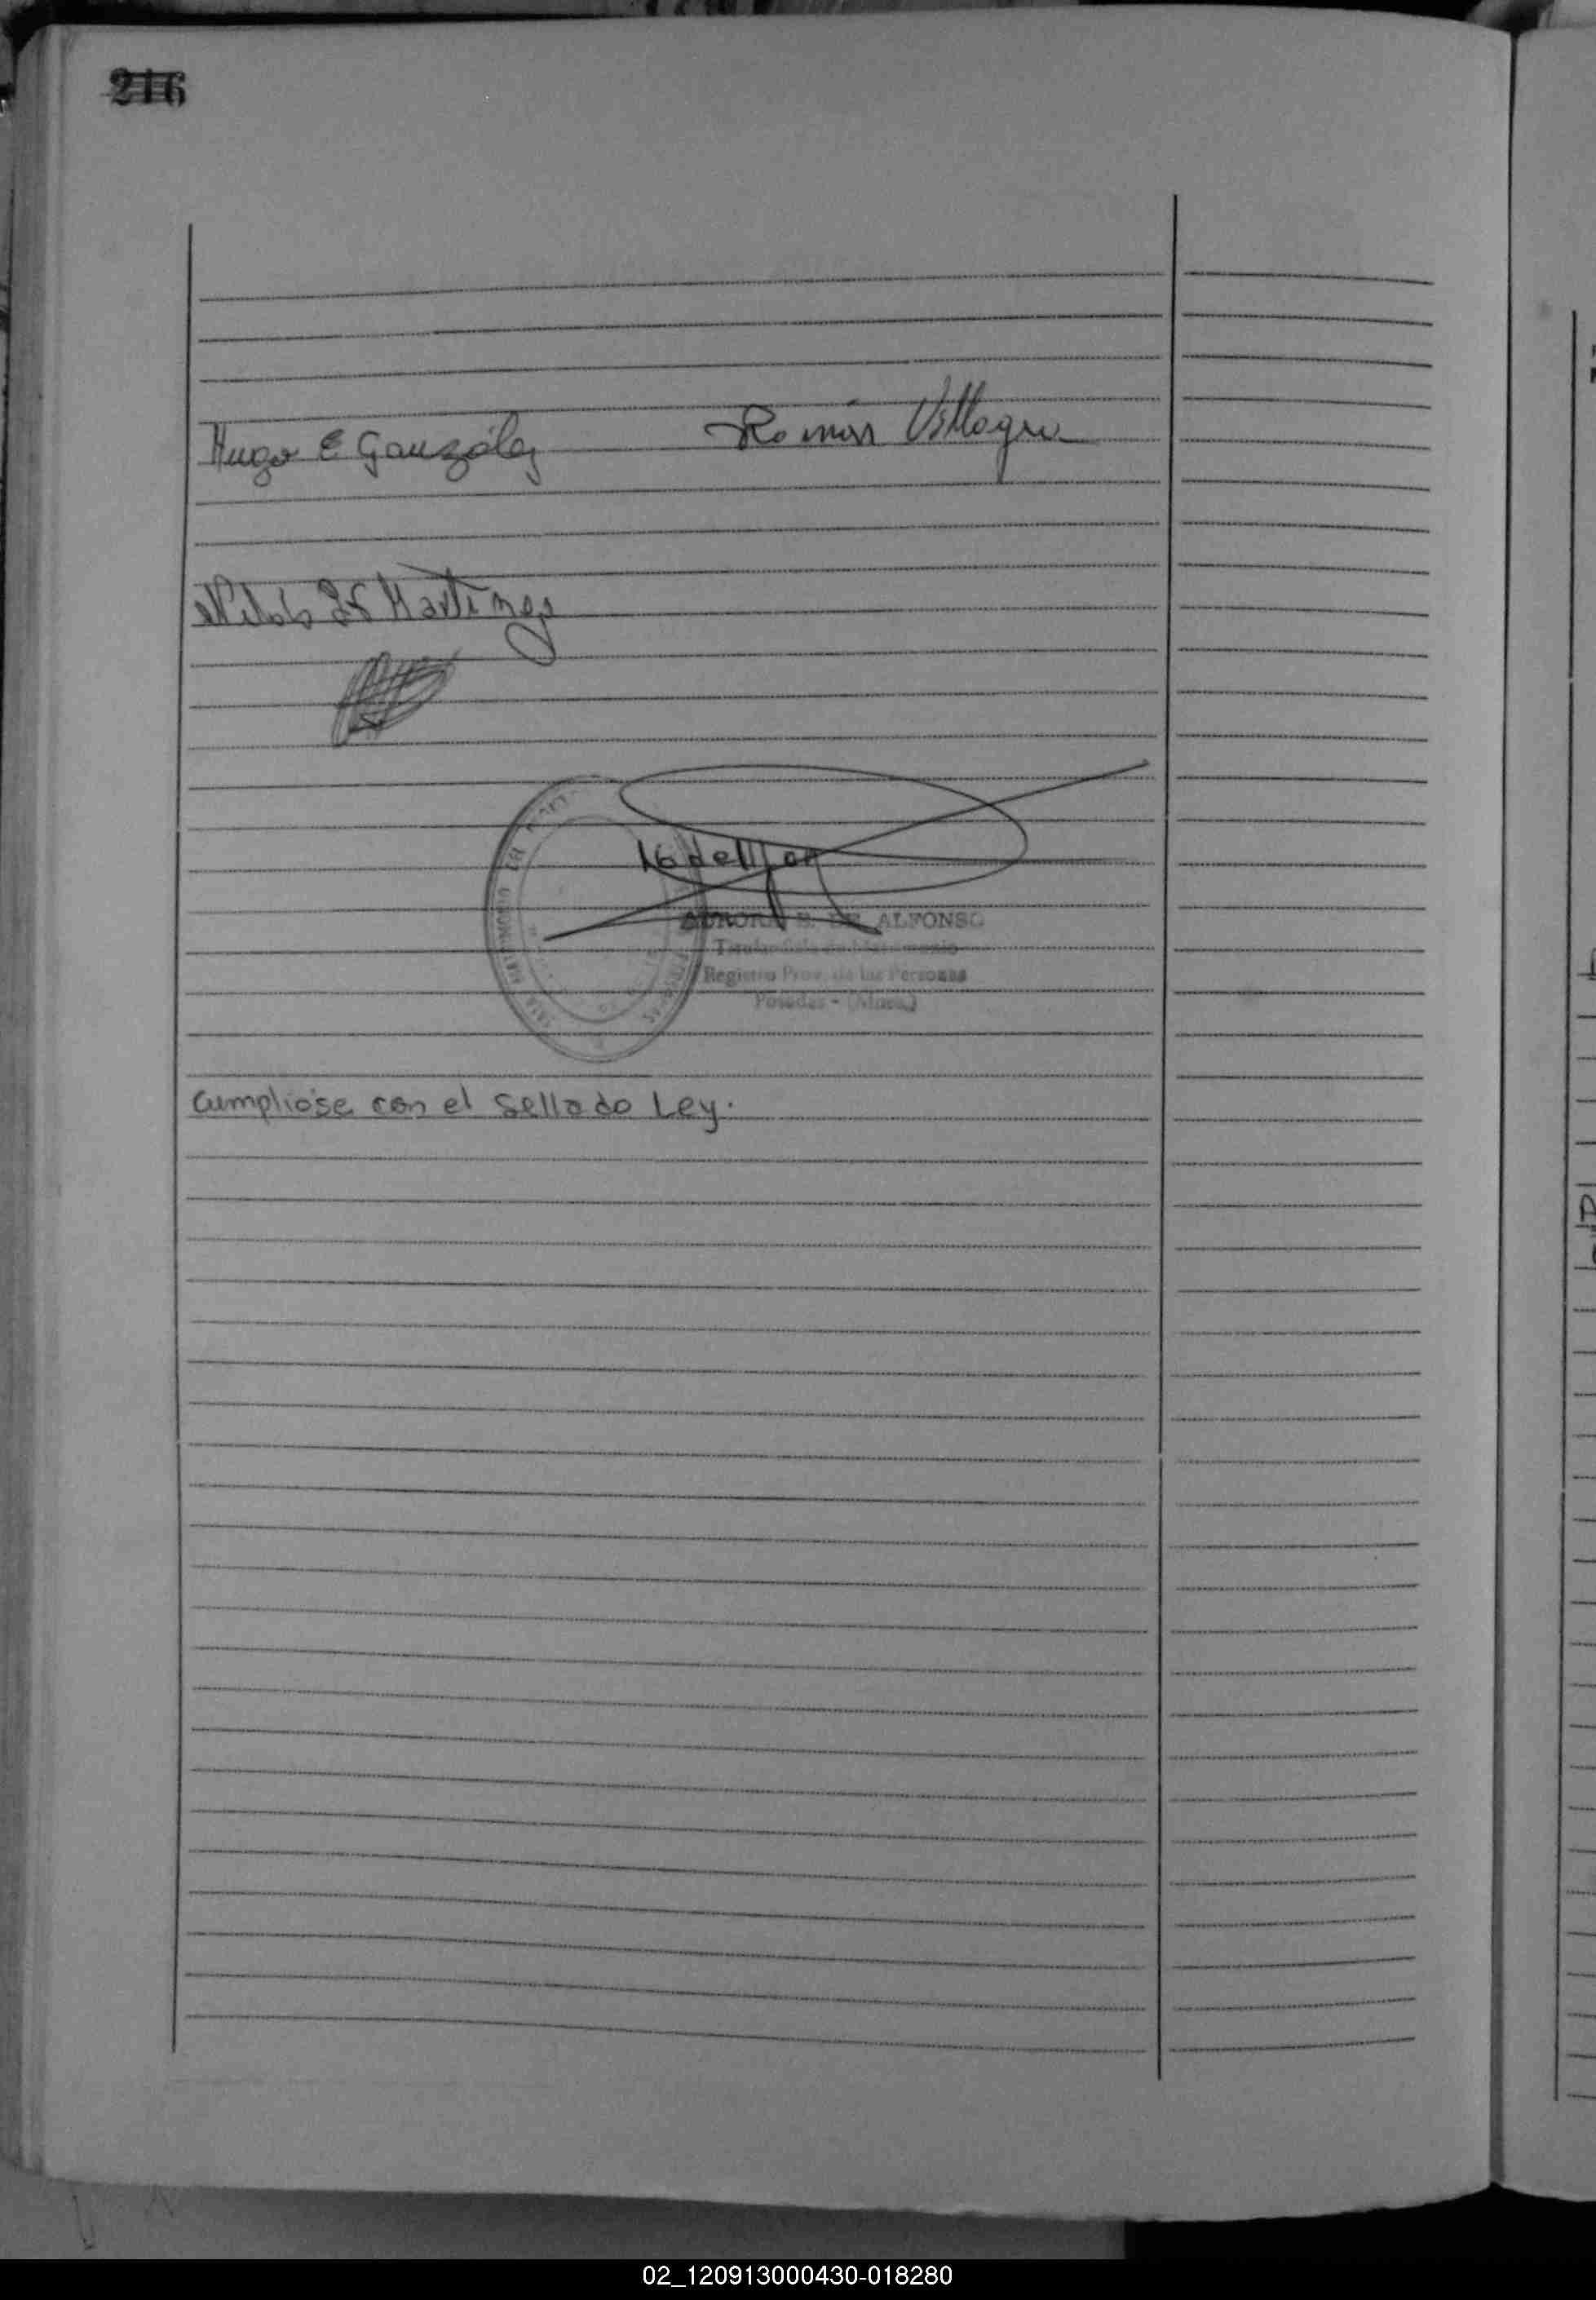 216
Hugo E González Román Villagra
Martínez
AURORA B. DE ALFONSO
Titular Sala de Matrimonio
Registro Prov. de las Personas
Posadas - (Mnes.)
Cumplióse con el sellado Ley.
02_120913000430-018280